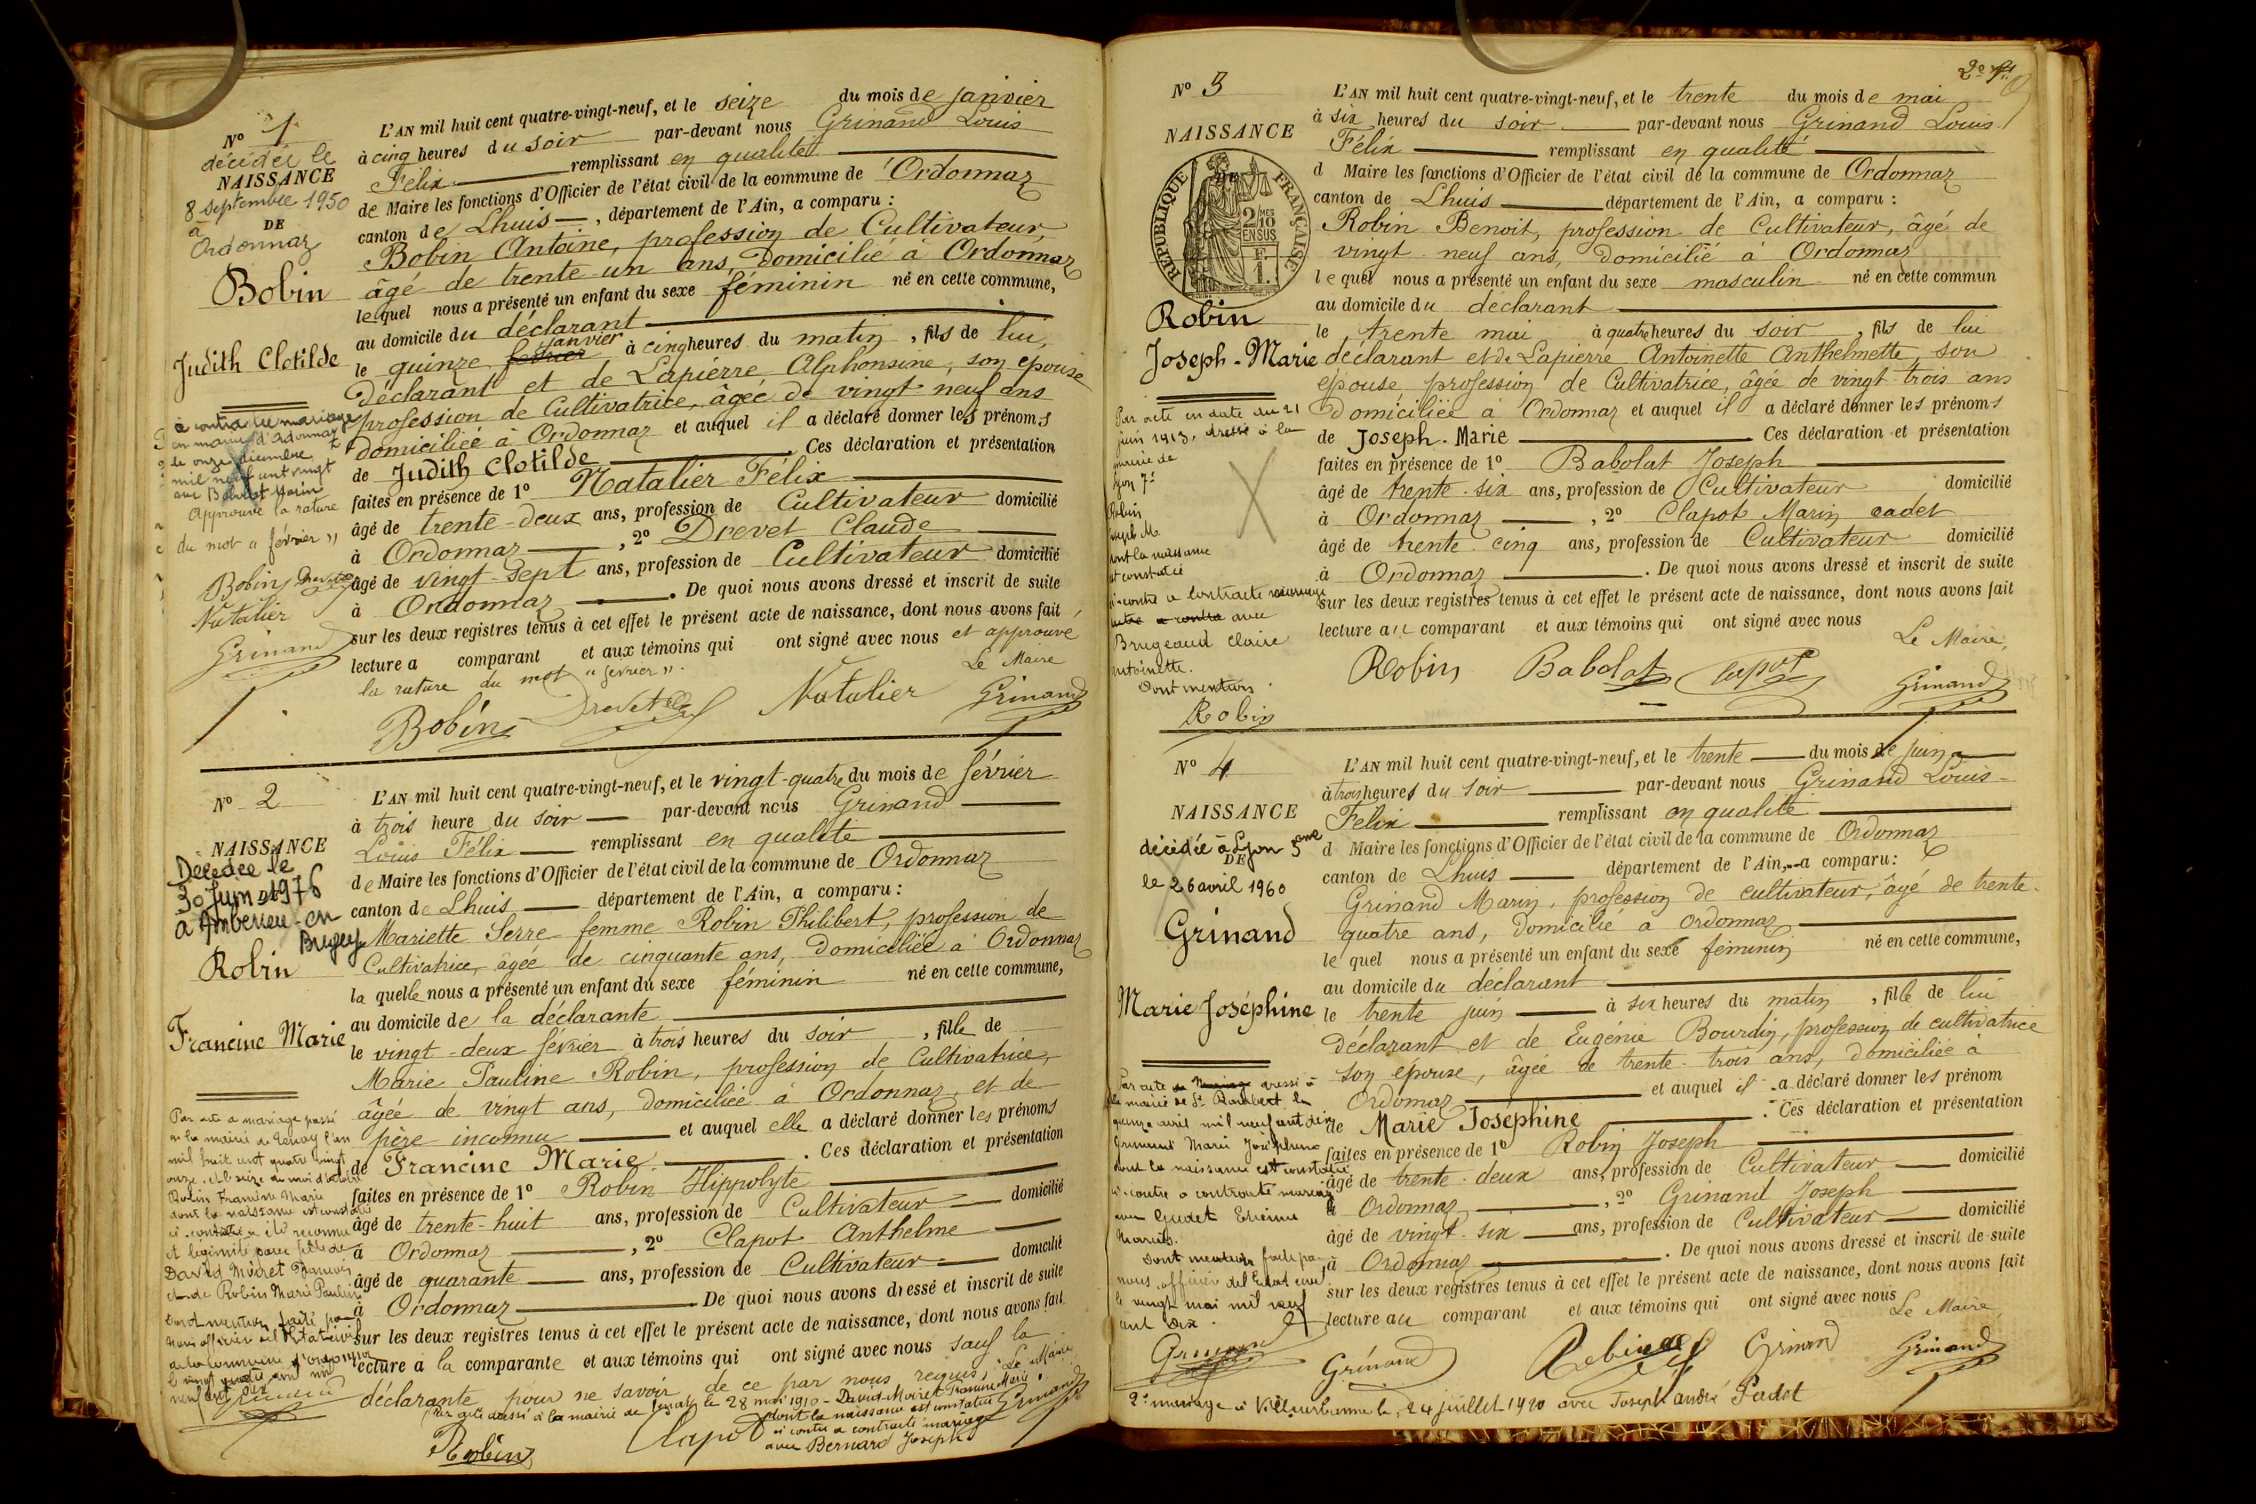 N° 1
décédée le
NAISSANCE
8 septembre 1950
à
DE
Ordonnaz
Bobin
Judith Clotilde
a contracté mariage
en mairie d'Ordonnaz
le onze décembre
mil neuf cent vingt
avec Babolat Marin
Approuvé la rature
du mot « février »
Bobin Drevet
Natalier
Grinand
L'AN mil huit cent quatre-vingt-neuf, et le seize du mois de janvier
à cinq heures du soir par-devant nous Grinand Louis
Félix remplissant en qualité
de Maire les fonctions d'Officier de l'état civil de la commune de Ordonnaz
canton de Lhuis, département de l'Ain, a comparu :
Bobin Antoine, profession de Cultivateur,
âgé de trente-un ans, domicilié à Ordonnaz
lequel nous a présenté un enfant du sexe féminin né en cette commune,
au domicile du déclarant
janvier
le quinze février à cinq heures du matin, fils de lui,
déclarant et de Lapierre Alphonsine, son épouse
profession de Cultivatrice, âgée de vingt-neuf ans
domiciliée à Ordonnaz et auquel il a déclaré donner les prénoms
de Judith Clotilde Ces déclaration et présentation
faites en présence de 1° Natalier Félix
âgé de trente-deux ans, profession de Cultivateur domicilié
à Ordonnaz, 2° Drevet Claude
âgé de vingt-sept ans, profession de Cultivateur domicilié
à Ordonnaz. De quoi nous avons dressé et inscrit de suite
sur les deux registres tenus à cet effet le présent acte de naissance, dont nous avons fait
lecture a comparant et aux témoins qui ont signé avec nous et approuvé
la rature du mot « février ». Le Maire
Bobin Drevet Natalier Grinand
N° 2
NAISSANCE
Décédée le
30 Juin 1976
à Ambérieu-en
Bugey
Robin
Francine Marie
Par acte de mariage passé
à la mairie de Tenay l'an
mil huit cent quatre vingt
onze et le seize du mois d'octobre
Robin Francine Marie
dont la naissance est constatée
ci-contre a été reconnue
et légitimée pour fille de
David Moiret François
et de Robin Marie Pauline
Dont mention faite par
nous officier de l'état civil
de la commune d'Ordonnaz
L'AN mil huit cent quatre-vingt-neuf, et le vingt-quatre du mois de février
à trois heure du soir par-devant nous Grinand
Louis Félix remplissant en qualité
de Maire les fonctions d'Officier de l'état civil de la commune de Ordonnaz
canton de Lhuis département de l'Ain, a comparu :
Mariette Serre femme Robin Philibert, profession de
Cultivatrice, âgée de cinquante ans, domiciliée à Ordonnaz
la quelle nous a présenté un enfant du sexe féminin né en cette commune,
au domicile de la déclarante
le vingt-deux février à trois heures du soir, fille de
Marie Pauline Robin, profession de Cultivatrice,
âgée de vingt ans, domiciliée à Ordonnaz et de
père inconnu et auquel elle a déclaré donner les prénoms
de Francine Marie. Ces déclaration et présentation
faites en présence de 1° Robin Hippolyte
âgé de trente-huit ans, profession de Cultivateur domicilié
à Ordonnaz, 2° Clapot Anthelme
âgé de quarante ans, profession de Cultivateur domicilié
à Ordonnaz De quoi nous avons dressé et inscrit de suite
sur les deux registres tenus à cet effet le présent acte de naissance, dont nous avons fait
lecture a la comparante et aux témoins qui ont signé avec nous sauf la
déclarante pour ne savoir de ce par nous requis. Le Maire
Par acte dressé à la mairie de Tenay le 28 mai 1910 - David-Moiret Francine Marie
dont la naissance est constatée
ci contre a contracté mariage
avec Bernard Joseph
Robin Clapot Grinand
2° ft
N° 3
NAISSANCE
RÉPUBLIQUE FRANÇAISE
2/10 MES
EN SUS
F. 1.
Robin
Joseph-Marie
Par acte en date du 21
juin 1913, dressé à la
mairie de
Lyon 7e
Robin
Joseph M.
dont la naissance
est constatée
ci-contre a contracté mariage
avec
Brugeaud Claire
Antoinette.
Dont mention.
Robin
L'AN mil huit cent quatre-vingt-neuf, et le trente du mois de mai
à six heures du soir par-devant nous Grinand Louis
Félix remplissant en qualité
d Maire les fonctions d'Officier de l'état civil de la commune de Ordonnaz
canton de Lhuis département de l'Ain, a comparu :
Robin Benoit, profession de Cultivateur, âgé de
vingt-neuf ans, domicilié à Ordonnaz
lequel nous a présenté un enfant du sexe masculin né en cette commun
au domicile du déclarant
le trente mai à quatre heures du soir, fils de lui
déclarant et de Lapierre Antoinette Anthelmette, son
épouse profession de Cultivatrice, âgée de vingt-trois ans
domiciliée à Ordonnaz et auquel il a déclaré donner les prénoms
de Joseph-Marie Ces déclaration et présentation
faites en présence de 1° Babolat Joseph
âgé de trente-six ans, profession de Cultivateur domicilié
à Ordonnaz, 2° Clapot Marin cadet
âgé de trente-cinq ans, profession de Cultivateur domicilié
à Ordonnaz. De quoi nous avons dressé et inscrit de suite
sur les deux registres tenus à cet effet le présent acte de naissance, dont nous avons fait
lecture au comparant et aux témoins qui ont signé avec nous
Le Maire,
Robin Babolat Clapot Grinand
N° 4
NAISSANCE
décédée à Lyon 5eme
DE
le 26 avril 1960
Grinand
Marie Joséphine
Par acte de mariage dressé à
la mairie de St Rambert le
quinze avril mil neuf cent dix
Grinand Marie Joséphine
dont la naissance est constatée
ci-contre a contracté mariage
avec Gudet Etienne
Dont mention faite par
nous, officier de l'Etat civil
le vingt mai mil neuf
cent dix.
Grinand
L'AN mil huit cent quatre-vingt-neuf, et le trente du mois de juin
à trois heures du soir par-devant nous Grinand Louis
Félix remplissant en qualité
d Maire les fonctions d'Officier de l'état civil de la commune de Ordonnaz
canton de Lhuis département de l'Ain, a comparu :
Grinand Marin, profession de cultivateur, âgé de trente-
quatre ans, domicilié à Ordonnaz
le quel nous a présenté un enfant du sexe féminin né en cette commune,
au domicile du déclarant
le trente juin à six heures du matin, fille de lui
déclarant et de Eugénie Bourdin, profession de cultivatrice
son épouse, âgée de trente-trois ans, domiciliée à
Ordonnaz et auquel il a déclaré donner les prénom
de Marie Joséphine. Ces déclaration et présentation
faites en présence de 1° Robin Joseph
âgé de trente-deux ans, profession de Cultivateur domicilié
à Ordonnaz, 2° Grinand Joseph
âgé de vingt-six ans, profession de Cultivateur domicilié
à Ordonnaz. De quoi nous avons dressé et inscrit de suite
sur les deux registres tenus à cet effet le présent acte de naissance, dont nous avons fait
lecture au comparant et aux témoins qui ont signé avec nous
Le Maire
Grinand Robin Grinand Grinand
2e mariage à Villeurbanne le 24 juillet 1920 avec Joseph André Padet